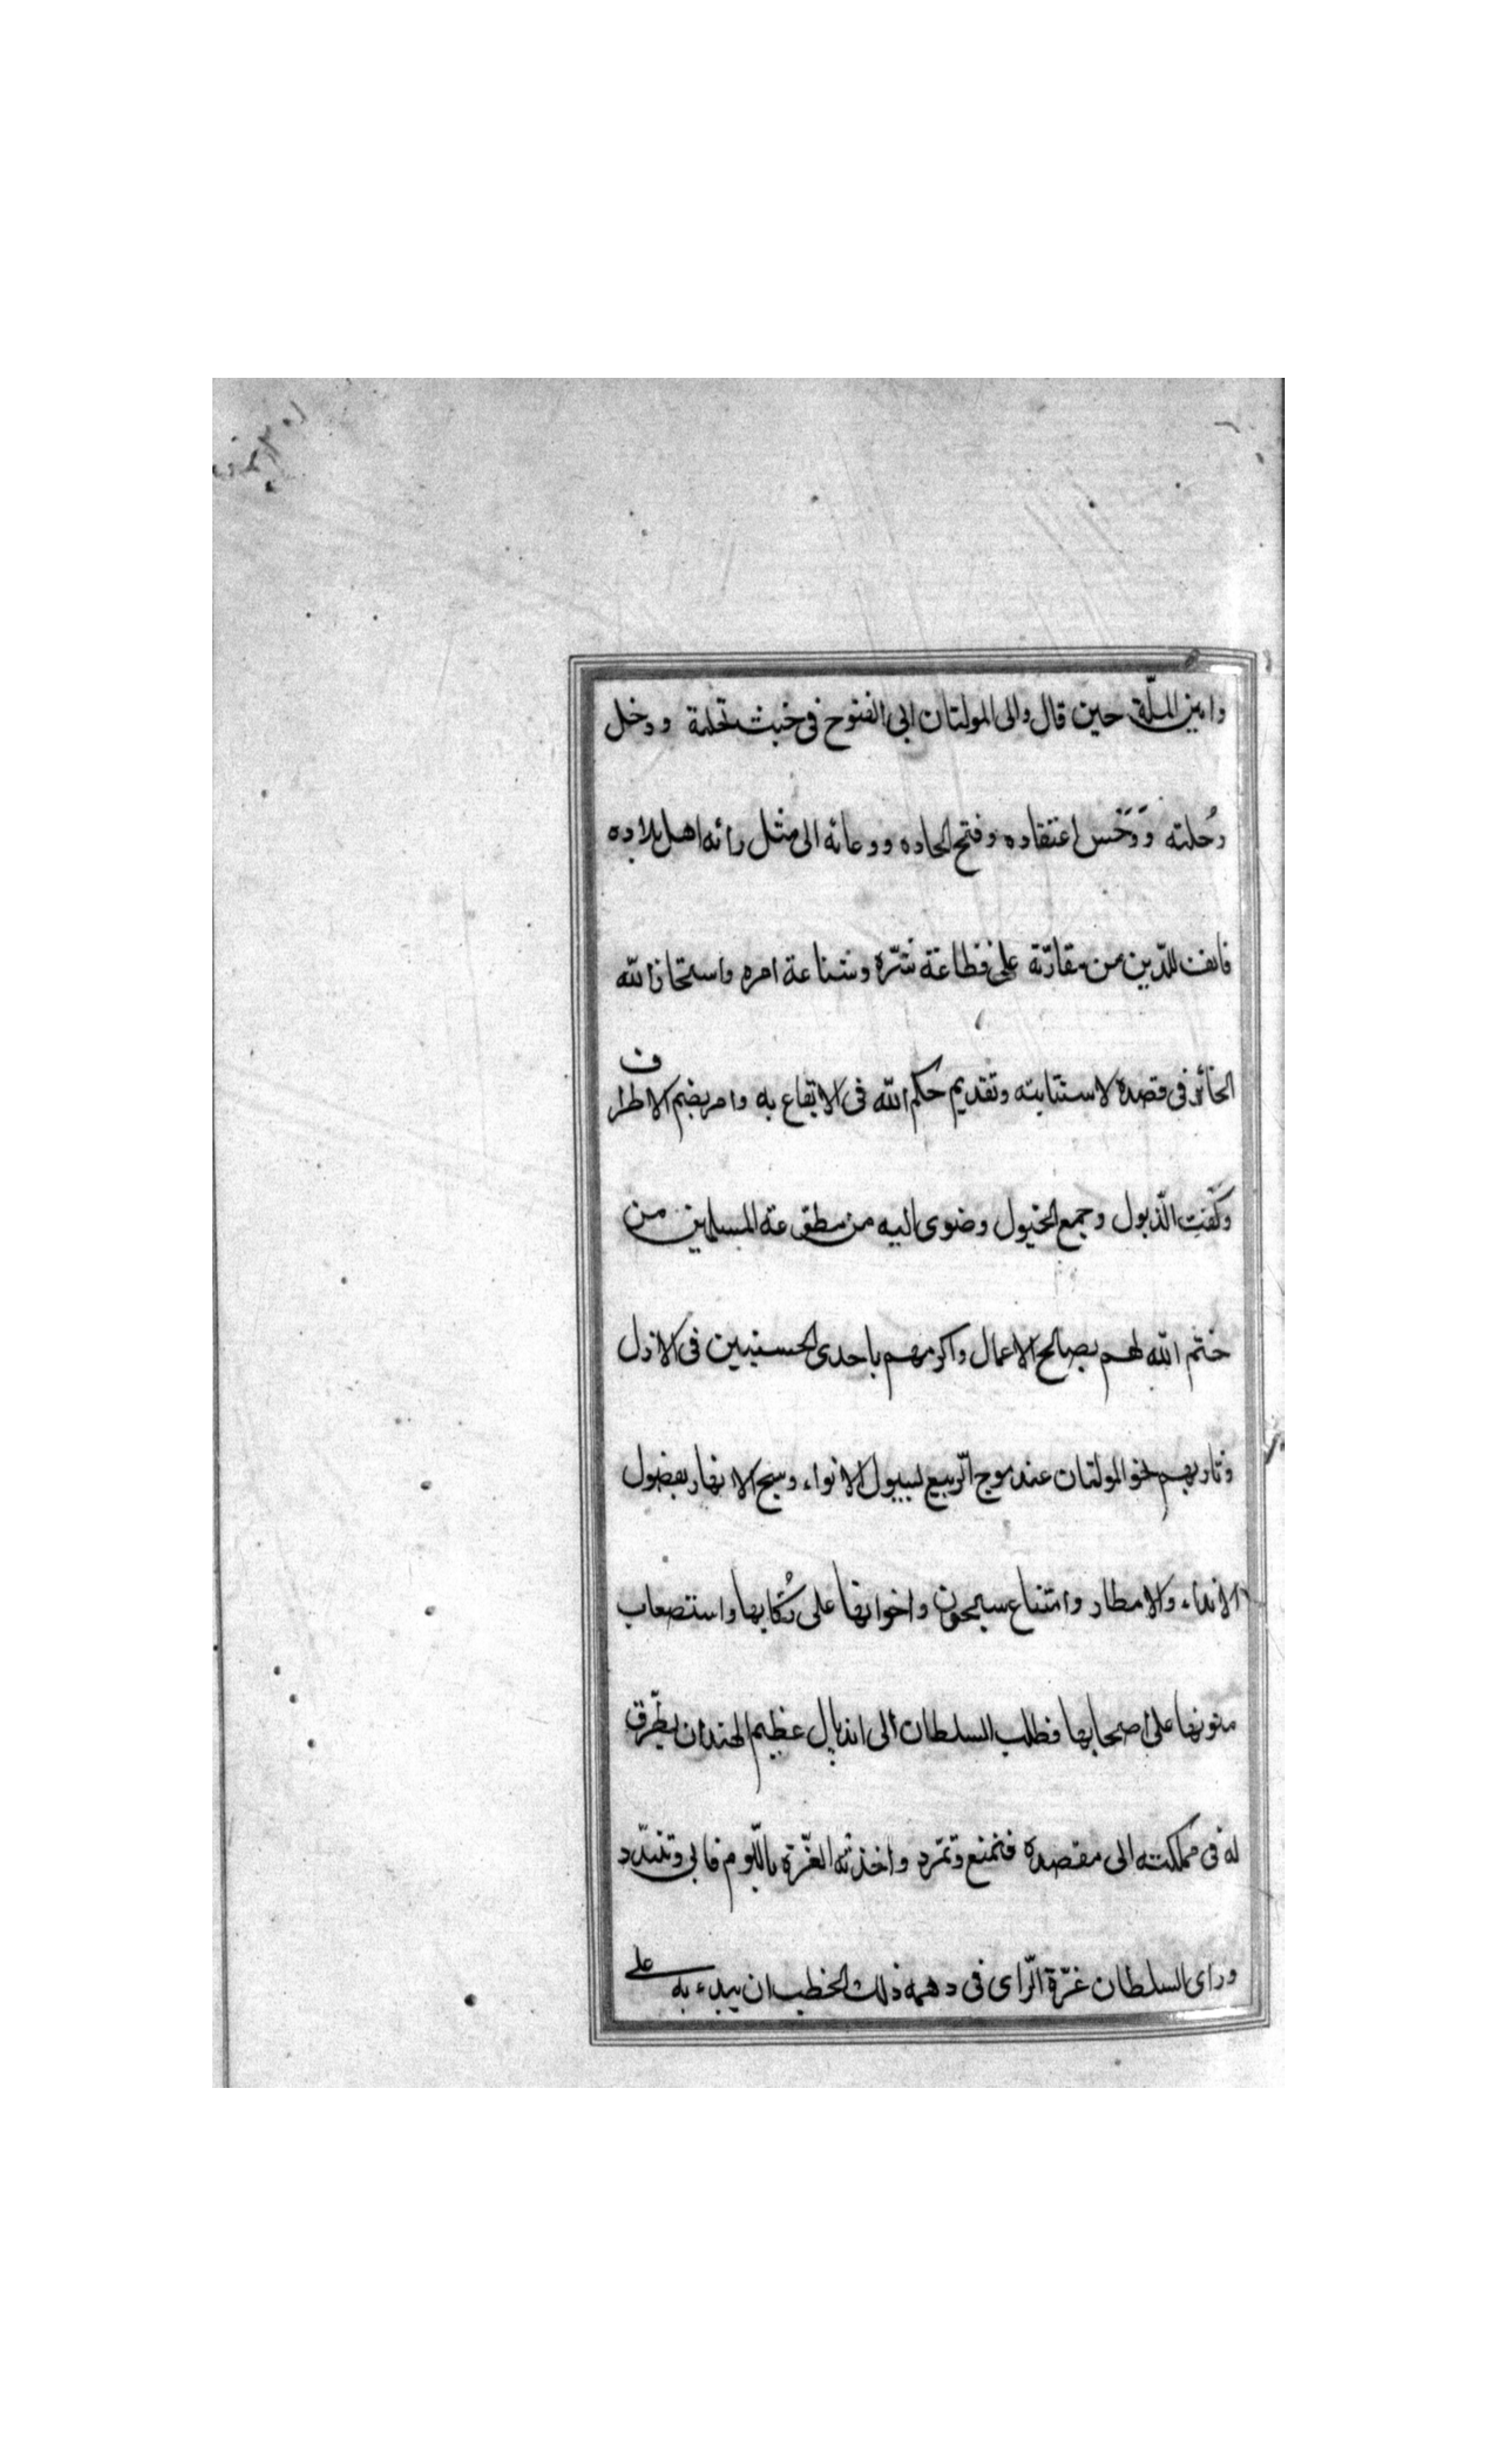 وامین الملّة حین قال والی المولتان ابی الفتوح فی خبث نحلته ودخل
دُخلته وَدَخَس اعتقاده وفتح الحاده ودعائه الی مثل رائه اهل بلاده
فانف للدّین من مقارّته علی فظاعة شرّه وشناعة امره واستخار الله
الخائر فی قصده لاستتابته وتقدیم حکم الله فی الایقاع به وامر بضم الاطراف
وکَفْتِ الذّیول وجمع الخیول وضوی الیه من مطوّعة المسلمین من
ختم الله لهم بصالح الاعمال واکرمهم باحدی الحسنیین فی الازل
وثار بهم نحو المولتان عند موج الرّبیع لسیول الانواء وسیح الانهار بفضول
الانداء والامطار وامتناع سیحون واخواتها علی رُکّابها واستصعاب
متونها علی اصحابها فطلب السلطان الی اندپال عظیم الهند ان یطرّق
له فی مملکته الی مقصده فتمنع وتمرّد واخذته العزّة باللّوم فابی وتشدّد
ورای السلطان غرّة الرّای فی دهمه ذلک الخطب ان یبدء به علی